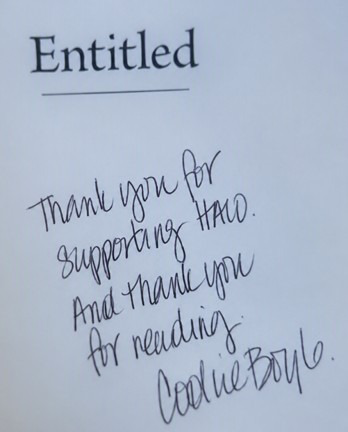 Entitled
Thank you for
supporting HALO.
And thank you
for reading.
Cookie Boyle.